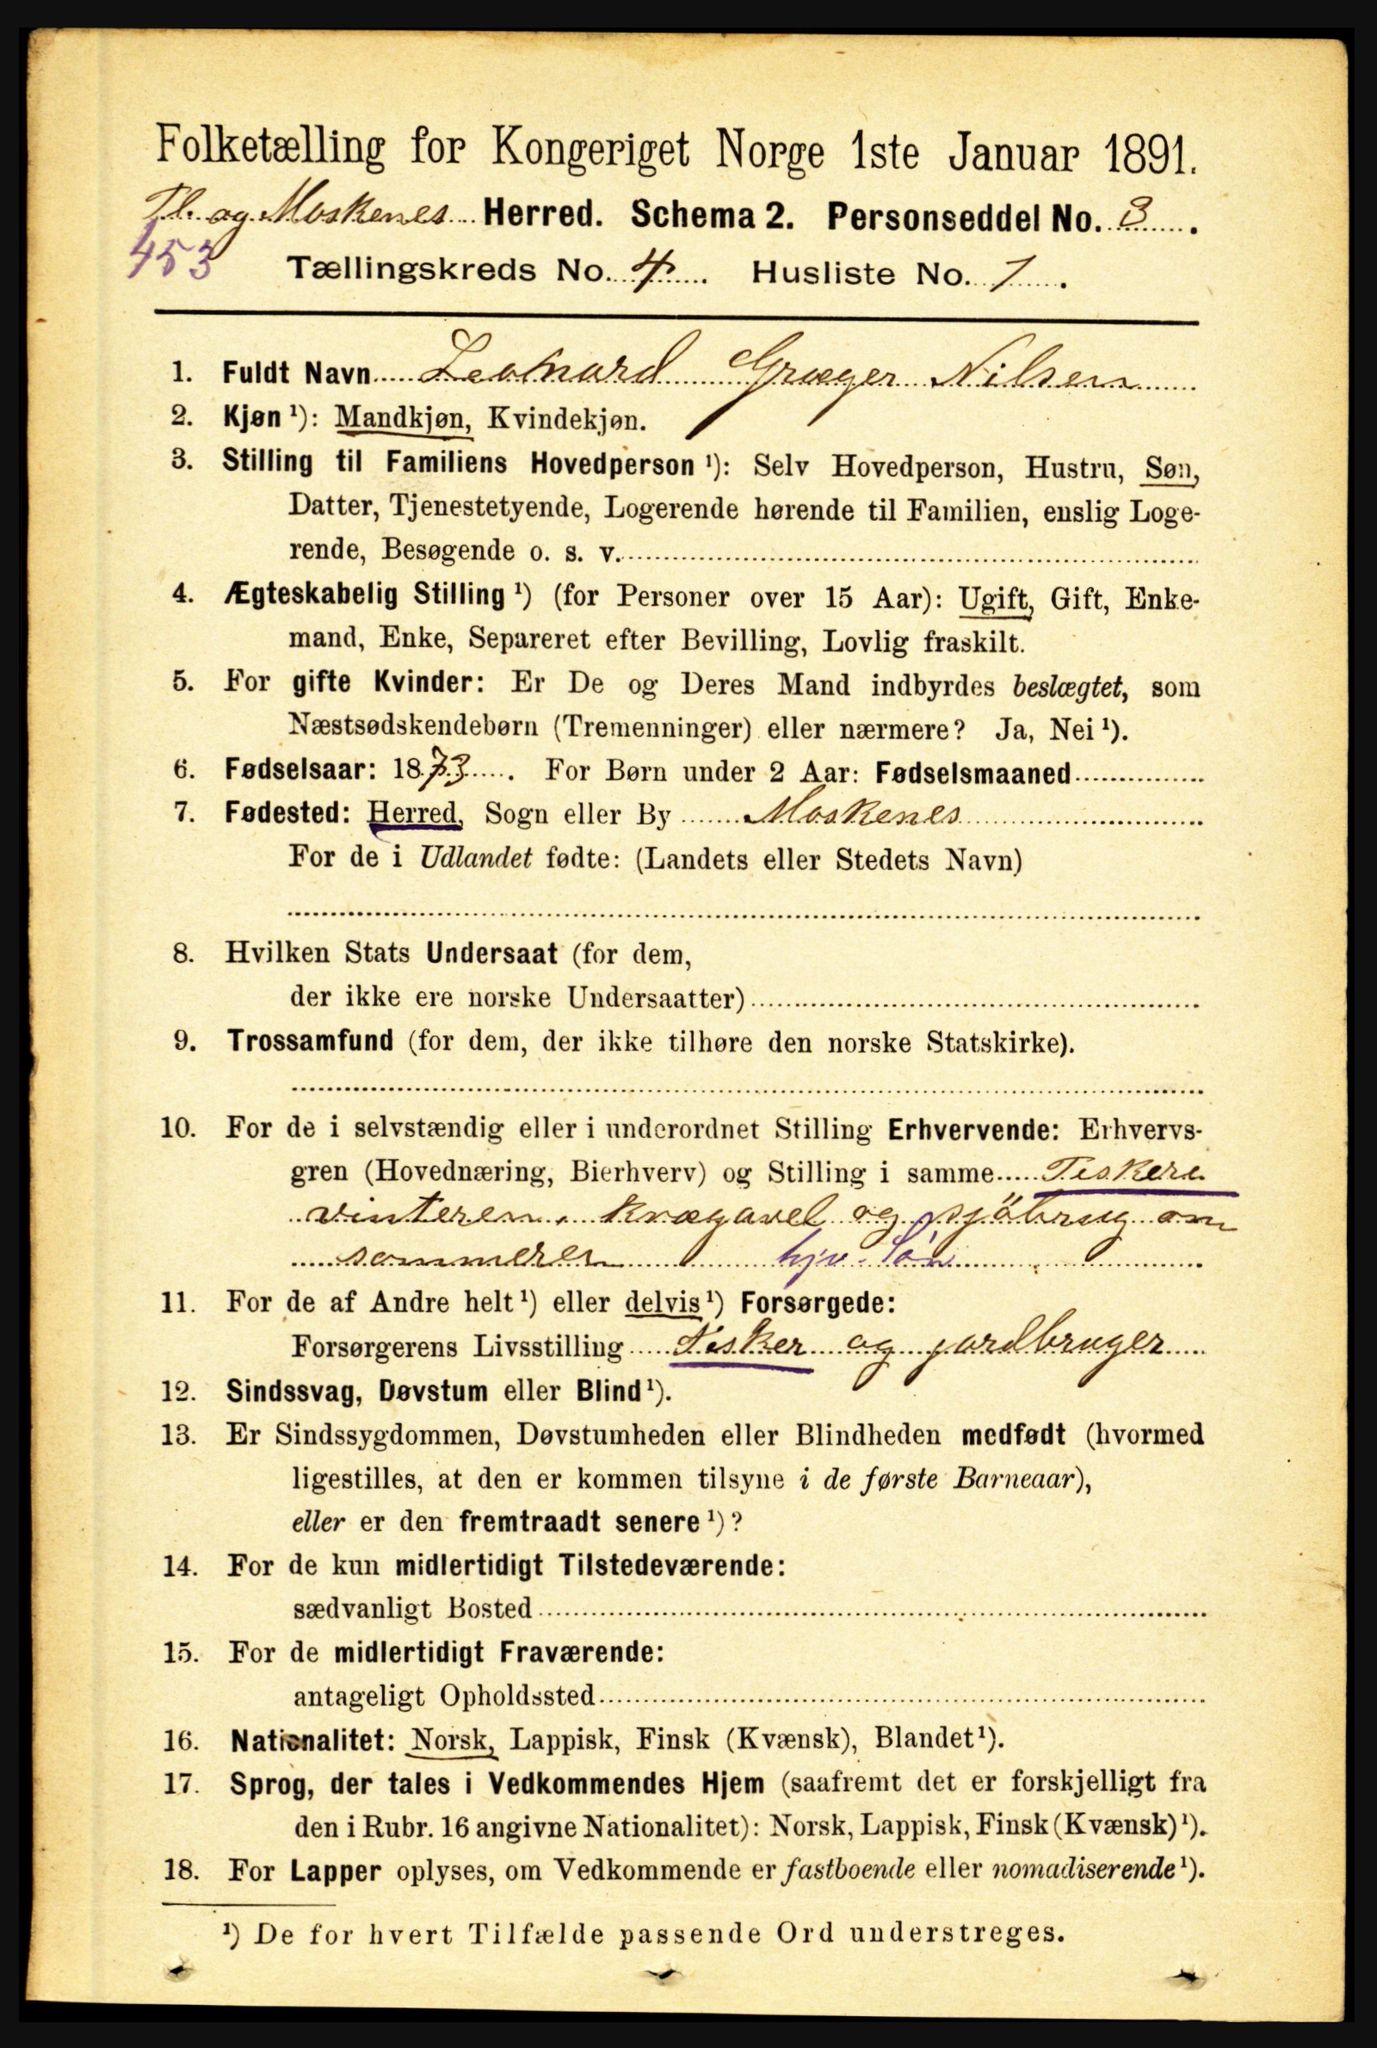 Folketælling for Kongeriget Norge 1ste Januar 1891.
Fl. og Moskenes Herred. Schema 2. Personseddel No. 3.
453 Tællingskreds No. 4. Husliste No. 1.
1. Fuldt Navn Leonard Græger Nilsen
2. Kjøn ¹): Mandkjøn, Kvindekjøn.
3. Stilling til Familiens Hovedperson ¹): Selv Hovedperson, Hustru, Søn,
Datter, Tjenestetyende, Logerende hørende til Familien, enslig Loge-
rende, Besøgende o. s. v.
4. Ægteskabelig Stilling ¹) (for Personer over 15 Aar): Ugift, Gift, Enke-
mand, Enke, Separeret efter Bevilling, Lovlig fraskilt.
5. For gifte Kvinder: Er De og Deres Mand indbyrdes beslægtet, som
Næstsødskendebørn (Tremenninger) eller nærmere? Ja, Nei ¹).
6. Fødselsaar: 1873. For Børn under 2 Aar: Fødselsmaaned
7. Fødested: Herred, Sogn eller By Moskenes
For de i Udlandet fødte: (Landets eller Stedets Navn)
8. Hvilken Stats Undersaat (for dem,
der ikke ere norske Undersaatter)
9. Trossamfund (for dem, der ikke tilhøre den norske Statskirke).
10. For de i selvstændig eller i underordnet Stilling Erhvervende: Erhvervs-
gren (Hovednæring, Bierhverv) og Stilling i samme Fiskere
vinteren, kvægavel og sjöbrug om
sommeren hjv. Søn
11. For de af Andre helt ¹) eller delvis ¹) Forsørgede:
Forsørgerens Livsstilling Fisker og jordbruger
12. Sindssvag, Døvstum eller Blind ¹).
13. Er Sindssygdommen, Døvstumheden eller Blindheden medfødt (hvormed
ligestilles, at den er kommen tilsyne i de første Barneaar),
eller er den fremtraadt senere ¹)?
14. For de kun midlertidigt Tilstedeværende:
sædvanligt Bosted
15. For de midlertidigt Fraværende:
antageligt Opholdssted
16. Nationalitet: Norsk, Lappisk, Finsk (Kvænsk), Blandet ¹).
17. Sprog, der tales i Vedkommendes Hjem (saafremt det er forskjelligt fra
den i Rubr. 16 angivne Nationalitet): Norsk, Lappisk, Finsk (Kvænsk) ¹).
18. For Lapper oplyses, om Vedkommende er fastboende eller nomadiserende ¹).
¹) De for hvert Tilfælde passende Ord understreges.